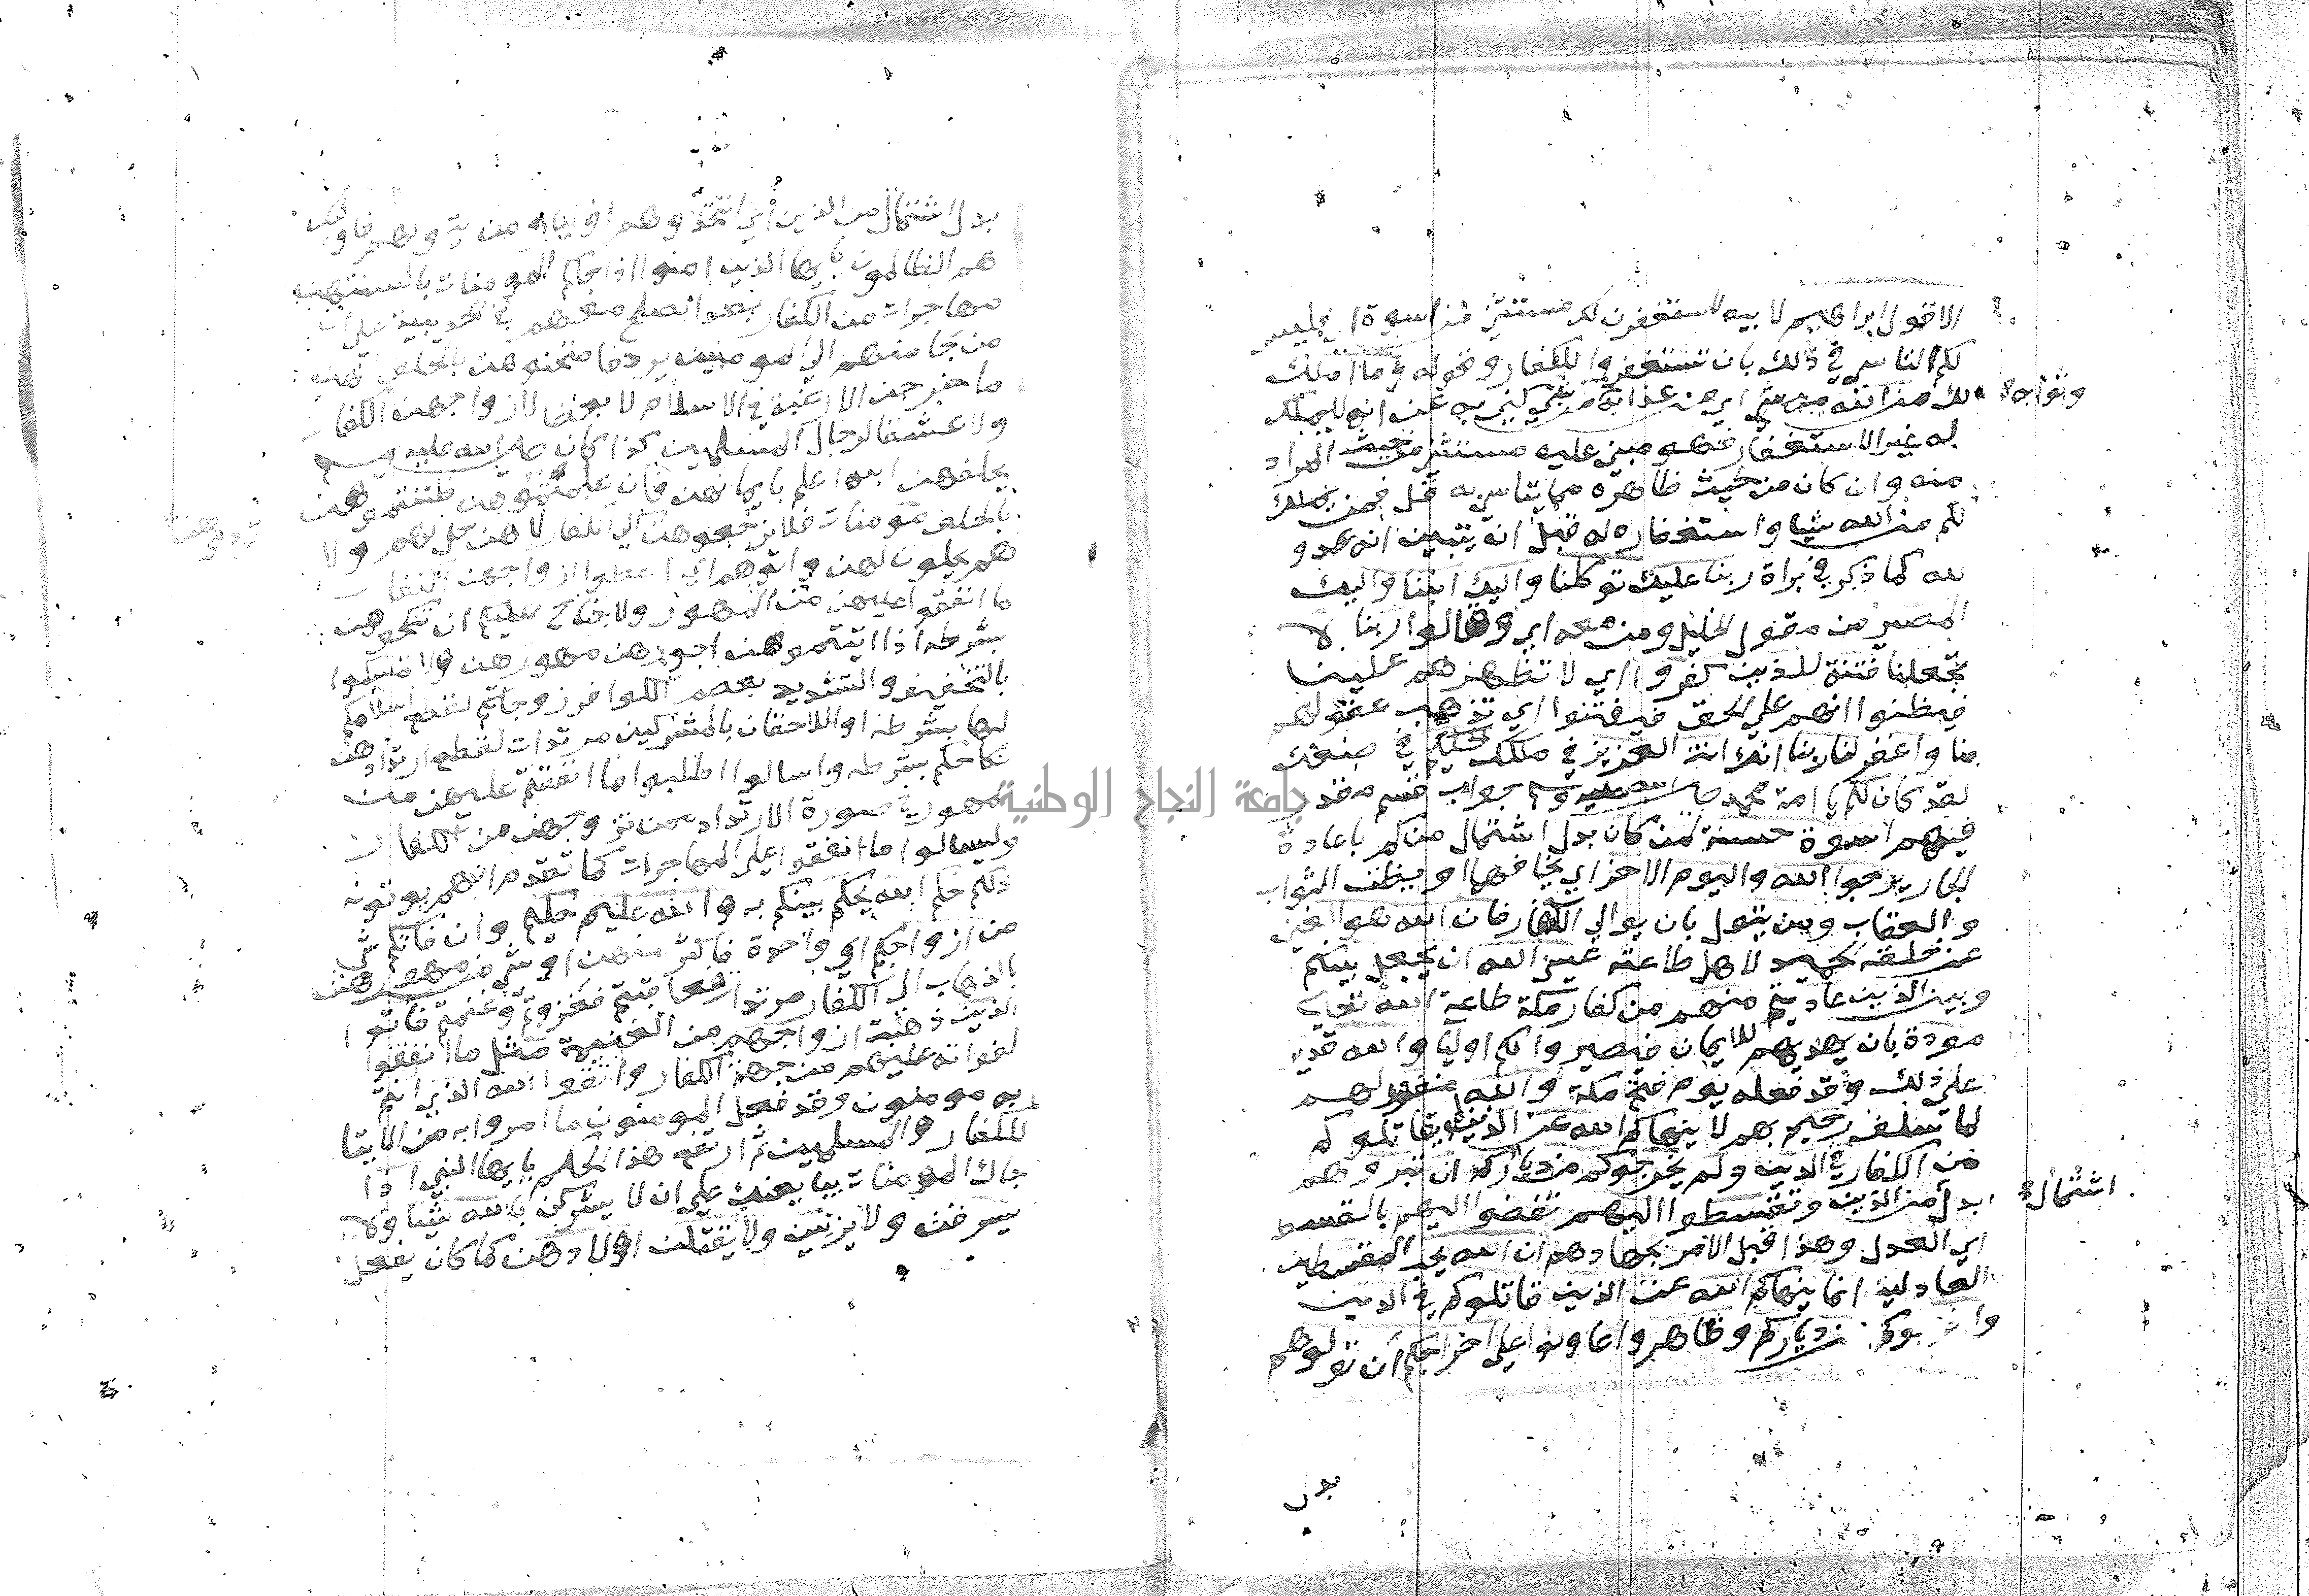 الا قول ابراهيم لابيه لاستغفرن لك مستثني من اسوة اي فليس
لكم الناسي في ذلك بان تستغفروا للكفار وقوله وما املك
لك من الله من شي اي من عذابه كني به عن انه لا يملك
وثوابه
له غير الاستغفار فهو مبني عليه مستثني من حيث المراد
منه وان كان من حيث ظاهره مما يتاسي به قل فمن يملك
لكم من الله شيا واستغفاره له قبل ان يتبين انه عدو
لله كما ذكر في براة ربنا عليك توكلنا واليك انبنا واليك
المصير من مقول الخليل ومن معه اي وقالوا ربنا لا
تجعلنا فتنة للذين كفروا اي لا تظهرهم علينا
فيظنوا انهم علي الحق فيفتنوا اي تذهب عقولهم
بنا واغفر لنا ربنا انك انت العزيز في ملكك الحكيم في صنعك
لقد كان لكم يا امة محمد صلي الله عليه وسلم جواب قسم مقدر
فيهم اسوة حسنة لمن كان بدل اشتمال من كم باعادة
الجار يرجوا الله واليوم الاخر اي يخافهما او يظن الثواب
والعقاب ومن يتول بان يوالي الكفار فان الله هو الغني
عن خلقه الحميد لاهل طاعته عسي الله ان يجعل بينكم
وبين الذين عاديتم منهم من كفار مكة طاعة الله تعالي
مودة بان يهديهم للايمان فيصيروا لكم اوليا والله قدير
علي ذلك وقد فعله يوم فتح مكة والله غفور لهم
لما سلف رحيم بهم لا ينهاكم الله عن الذين لم يقاتلوكم
من الكفار في الدين ولم يخرجوكم من دياركم ان تبروهم
بدل من الذين وتقسطوا اليهم تفضوا اليهم بالقسط
اشتمال
اي العدل وهذا قبل الامر بجهادهم ان الله يحب المقسطين
العادلين انما ينهاكم الله عن الذين قاتلوكم في الدين
دياركم وظاهروا عاونوا علي اخراجكم ان تولوهم
بدل
بدل اشتمال من الذين اي تتخذوهم اوليا ومن يتولهم فاوليك
هم الظالمون يايها الذين امنوا اذا جاكم المومنات بالسنتهن
مهاجرات من الكفار بعد الصلح معهم في الحديبية علي ان
من جا منهم الي المومنين يرد فامتحنوهن بالحلف انهن
ما خرجن الا رغبة في الاسلام لا بغضا لازواجهن الكفار
ولا عشقا لرجال المسلمين كذا كان صلي الله عليه وسلم
يحلفهن الله اعلم بايمانهن فان علمتموهن ظننتموهن
بالحلف مومنات فلا ترجعوهن الي الكفار لا هن حل لهم ولا
تردوهن
هم يحلون لهن واتوهم اي اعطوا ازواجهن الكفار
ما انفقوا عليهن من المهور ولا جناح عليكم ان تنكحوهن
بشرطه اذا اتيتموهن اجورهن مهورهن ولا تمسكوا
بالتخفيف والتشديد بعصم الكوافر زوجاتكم لقطع اسلامكم
لها بشرطه او اللاحقات بالمشركين مرتدات لقطع ارتدادهن
نكاحكم بشرطه واسالوا اطلبوا ما انفقتم عليهن من
المهور في صورة الارتداد ممن تزوجهن من الكفار
وليسالوا ما انفقوا علي المهاجرات كما تقدم انهم يوتونه
ذلكم حكم الله يحكم بينكم به والله عليم حكيم وان فاتكم شي
من ازواجكم اي واحدة فاكثر منهن او شي من مهورهن
بالذهاب الي الكفار مرتدات فعاقبتم فغزوتم وغنمتم فاتوا
الذين ذهبت ازواجهم من الغنيمة مثل ما انفقوا
لفواته عليهم من جهة الكفار واتقوا الله الذي انتم
به مومنون وقد فعل المومنون ما امروا به من الايتا
للكفار والمسلمين ثم ارتفع هذا الحكم يايها النبي اذا
جاك المومنات يبايعنك علي ان لا يشركن بالله شيا ولا
يسرقن ولا يزنين ولا يقتلن اولادهن كما كان يفعل
جامعة النجاح الوطنية